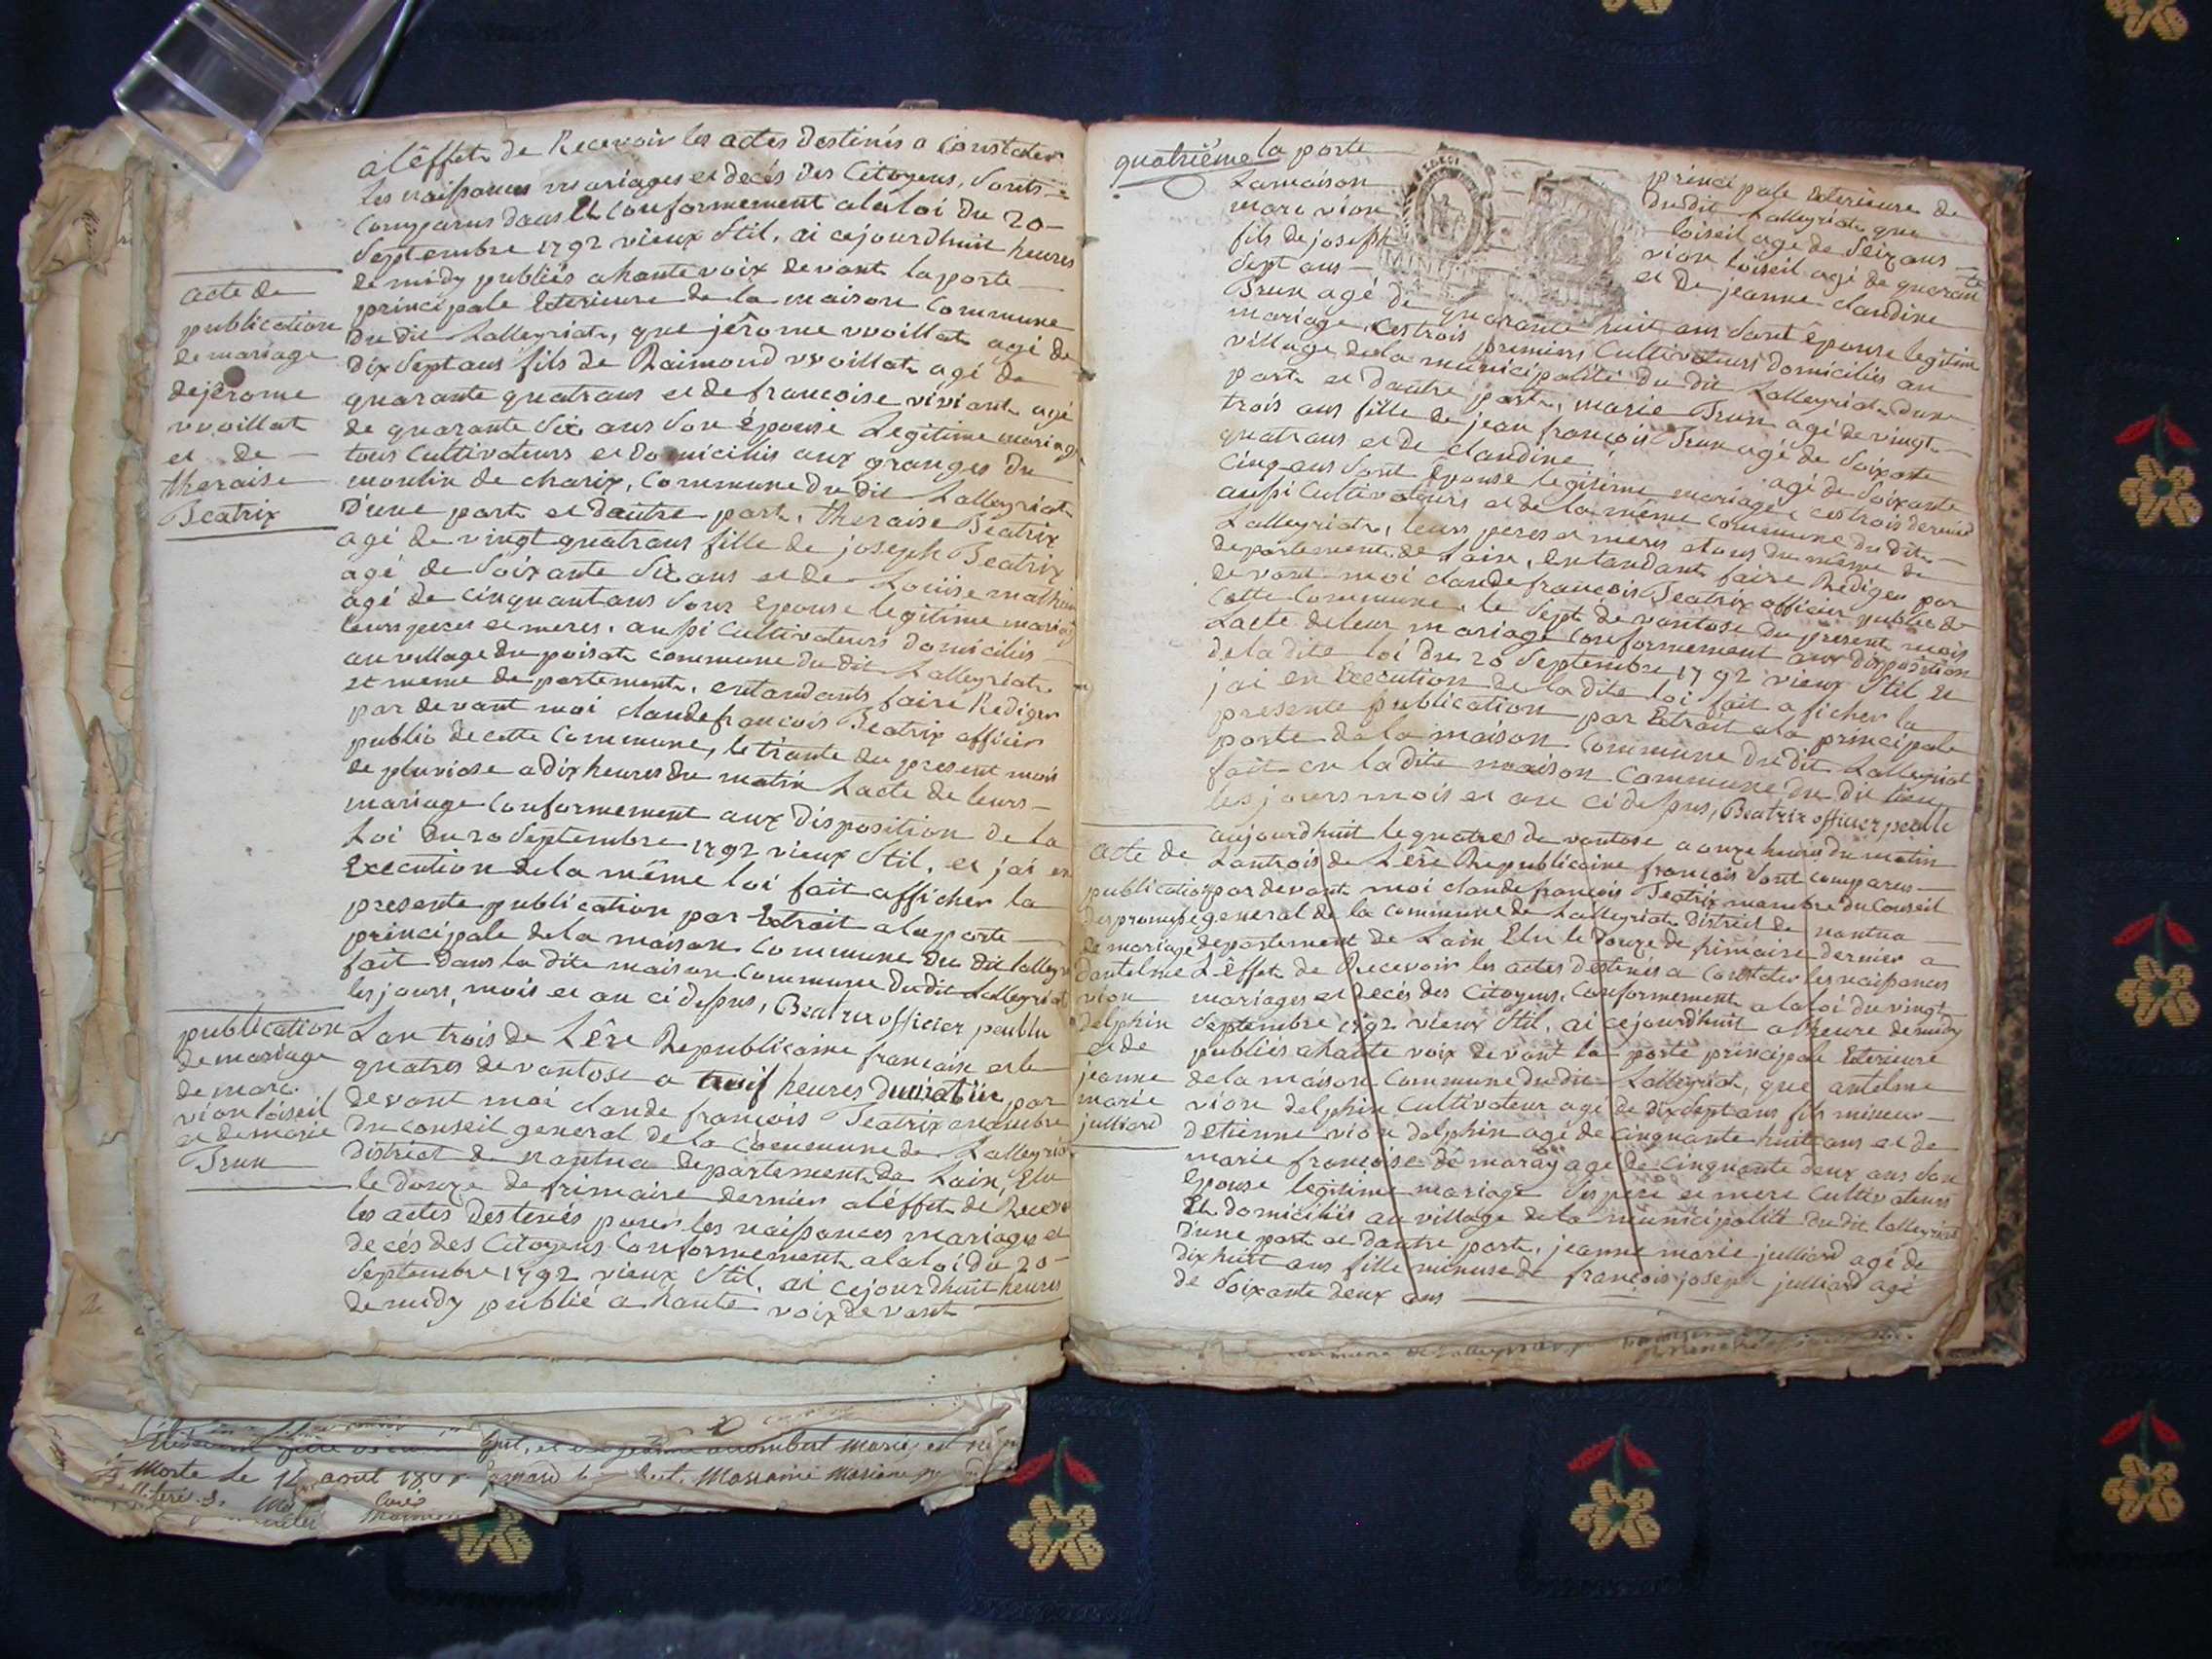 a lêffet de Recevoir les actes destinés a Constater
les naissances mariages et decés des Citoyens, sont
Comparus dans Et conformement a la loi du 20
septembre 1792 vieux stil, ai cejourdhuit heures
de midy publiés a haute voix devant la porte
principale Exterieure de la maison Commune
du dit Lalleyriat, que jêrome vuoillat agé de
dix sept ans fils de Raimond vuoillat agé de
quarante quatrans et de francoise viviant agé
de quarante six ans son épouse Legitime mariage
tous Cultivateurs et domiciliés aux granges du
moulin de charix, Commune du dit Lalleyriat
d'une part et dautre part, theraise Beatrix
agé de vingt quatrans fille de joseph Beatrix
agé de soixante six ans et de Louise
agé de cinquantans sont Epouse legitime mariage
leurs peres et meres, aussi Cultivateurs domiciliés
au village du poisat commune du dit Lalleyriat
et meme departement, entandants faire Rediger
par devant moi claude francois Beatrix officier
public de cette Commune, le trante du present mois
de pluviose a dix heures du matin Lacte de leurs
mariage Conformement aux disposition de la
Loi du 20 septembre 1792 vieux stil, et jai en
Execution de la même loi fait afficher la
presente publication par Extrait a la porte
principale de la maison Commune du dit lalleyriat
fait dans la dite maison Commune du dit Lalleyriat
les jours, mois et an ci dessus, Beatrix officier peublic
acte de
publication
de mariage
de jerome
vuoillat
et de
theraise
Beatrix
Lan trois de Lêre Republicaine francaise et le
quatres de vantose a neuif heures du matin, par
devant moi claude françois Beatrix mambre
du Conseil general de la Commune de Lalleyriat
district de nantua departement de Lain, Elu
le douze de frimaire dernier a léffet de Recevoir
les actes destinés pour les naissances mariages et
decés des Citoyens Conformement a la loi du 20
septembre 1792 vieux stil, ai cejourdhuit heures
de midy publié a haute voix devant
publication
de mariage
de marc
vion loiseil
et de marie
Brun
quatriême la porte
principale Exterieure de
La maison
du dit Lalleyriat que
marc vion
loiseil agé de seizans
fils de joseph
vion loiseil agé de quarante
sept ans
et de jeanne claudine
Brun agé de quarante huit ans sont épouse legitime
mariage, ces trois premiers Cultivateurs domiciliés au
village de la municipalité du dit Lalleyriat dune
part et dautre part, marie Brun agé de vingt
trois ans fille de jean françois Brun agé de soixante
quatrans et de claudine agé de soixante
cinq ans sont Epouse legitime mariage ces trois dernier
aussi Cultivateurs et de la même Commune du dit
Lalleyriat, leurs peres et meres et ous du même de
departement de Lain, Entandant faire Rediger par
devant moi claude francois Beatrix officier public de
cette Commune, le sept de vantose du present mois
Lacte de leur mariage conformement aux disposition
de la dite loi du 20 septembre 1792 vieux stil, et
jai en Execution de la dite loi fait aficher la
presente publication par Extrait a la principale
porte de la maison Commune du dit Lalleyriat
fait en la dite maison Commune du dit lieu
les jours mois et an ci dessus, Beatrix officier peublic
aujourdhuit le quatres de vantose a onze heures du matin
Lan trois de Lêre Republicaine françois sont comparus
par devant moi claude francois Beatrix mambre du Conseil
general de la Commune de Lalleyriat district de nantua
departement de Lain Elu le douze de frimaire dernier a
Lêffet de Recevoir les actes destinés a Constater les naissances
mariages et decés des Citoyens, Conformement a la loi du vingt
septembre 1792 vieux stil, ai cejourdhuit a lheure de midy
publiés a haute voix devant la porte principale Exterieure
de la maison Commune du dit Lalleyriat, que antelme
vion delphin Cultivateur agé de dix sept ans fils mineur
detienne vion delphin agé de cinquante huit ans et de
marie françoise de maray agé de Cinquante deux ans son
épouse legitime mariage ses pere et mere Cultivateurs
Et domiciliés au village de la municipalité du dit lalleyriat
d'une part et dautre part, jeanne marie julliard agé de
dix huit ans fille mineuse de françois joseph julliard agé
de soixante deux ans
acte de
publication
des promesse
de mariage
dantelme
vion
delphin
et de
jeanne
marie
julliard
Morte le 12 aout